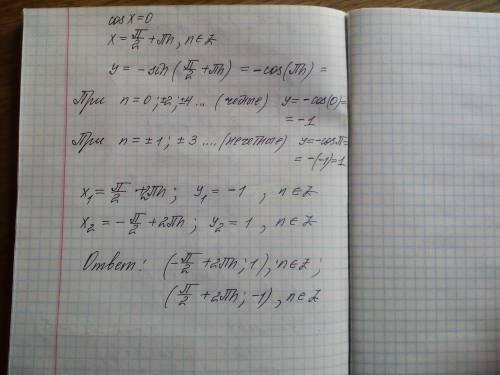 cos x = 0
x = π/2 + πn, n ∈ Z
y = - sin (π/2 + πn) = - cos(πn) =
При n = 0; ±2; ±4 ... (чётные) y = - cos(0) =
= -1
При n = ±1; ±3 .... (нечетные) y = - cos π =
= -(-1) = 1
x₁ = π/2 + 2πn; y₁ = -1, n ∈ Z
x₂ = - π/2 + 2πn; y₂ = 1, n ∈ Z
Ответ: (- π/2 + 2πn; 1), n ∈ Z;
(π/2 + 2πn; -1), n ∈ Z